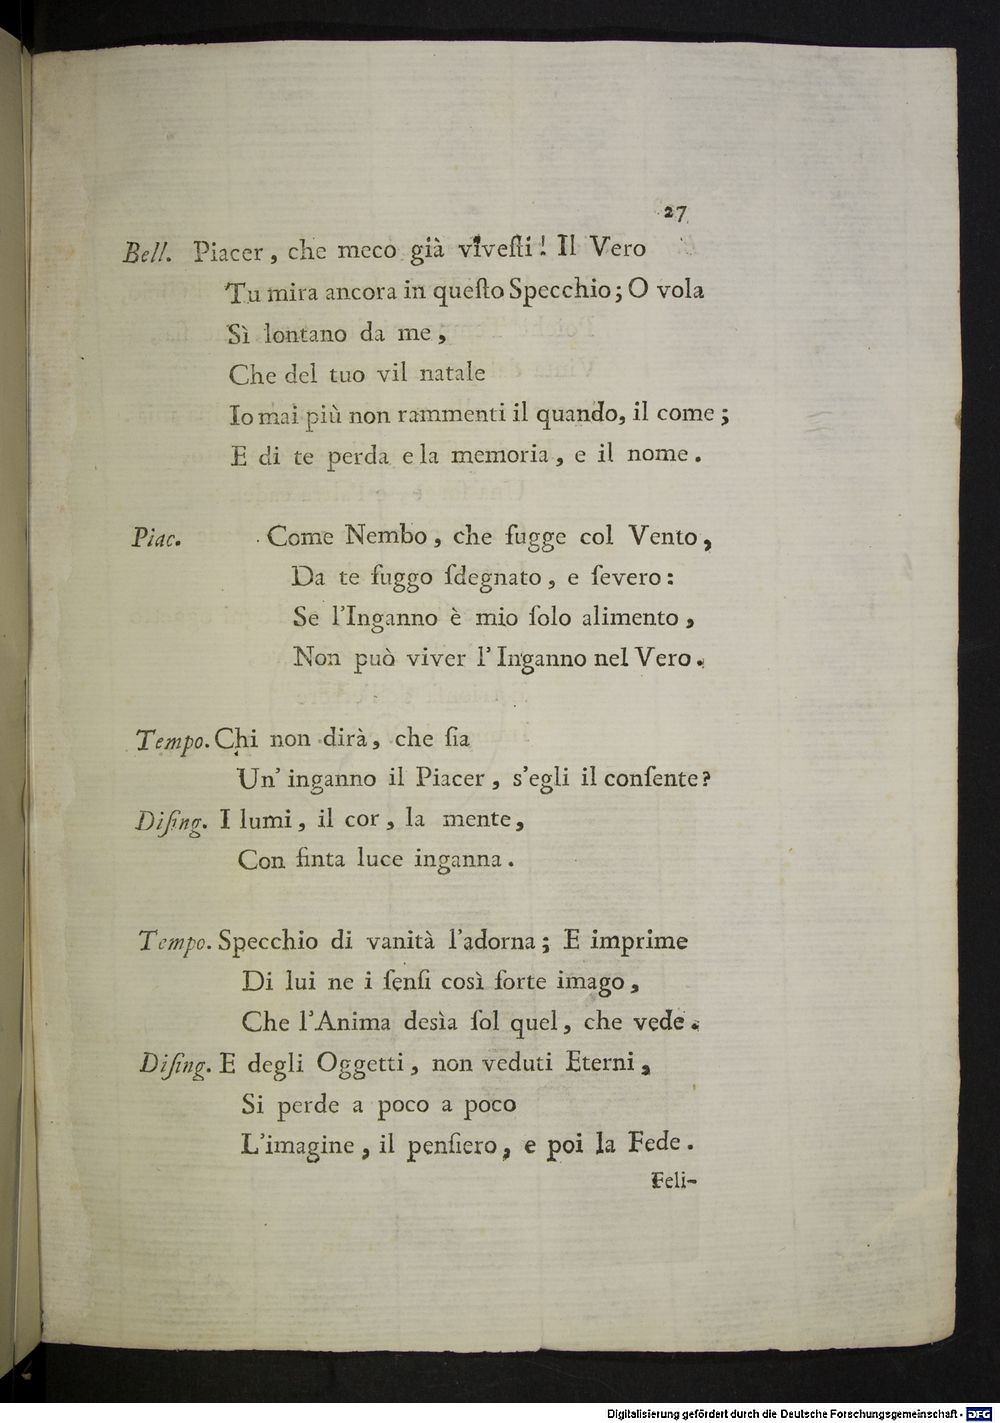 27
Bell. Piacer, che meco già viveſti! Il Vero
Tu mira ancora in queſto Specchio; O vola
Sì lontano da me,
Che del tuo vil natale
Io mai più non rammenti il quando, il come;
E di te perda e la memoria, e il nome.
Piac. Come Nembo, che fugge col Vento,
Da te fuggo ſdegnato, e ſevero:
Se l'Inganno è mio ſolo alimento,
Non può viver l'Inganno nel Vero.
Tempo. Chi non dirà, che ſia
Un' inganno il Piacer, s'egli il conſente?
Diſing. I lumi, il cor, la mente,
Con finta luce inganna.
Tempo. Specchio di vanità l'adorna; E imprime
Di lui ne i ſenſi così forte imago,
Che l'Anima desìa ſol quel, che vede.
Diſing. E degli Oggetti, non veduti Eterni,
Si perde a poco a poco
L'imagine, il penſiero, e poi la Fede.
Feli-
Digitalisierung gefördert durch die Deutsche Forschungsgemeinschaft - DFG